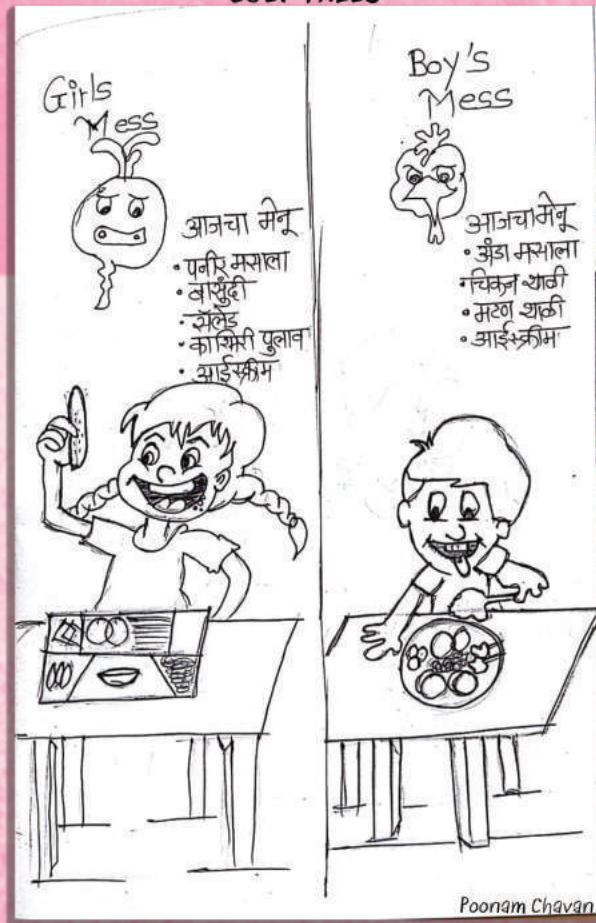 Girls
Mess
आजचा मेनू
• पनीर मसाला
• बासुंदी
• सॅलेड
• काश्मिरी पुलाव
• आईस्क्रीम
Boy's
Mess
आजचा मेनू
• अंडा मसाला
• चिकन थाळी
• मटण थाळी
• आईस्क्रीम
Poonam Chavan